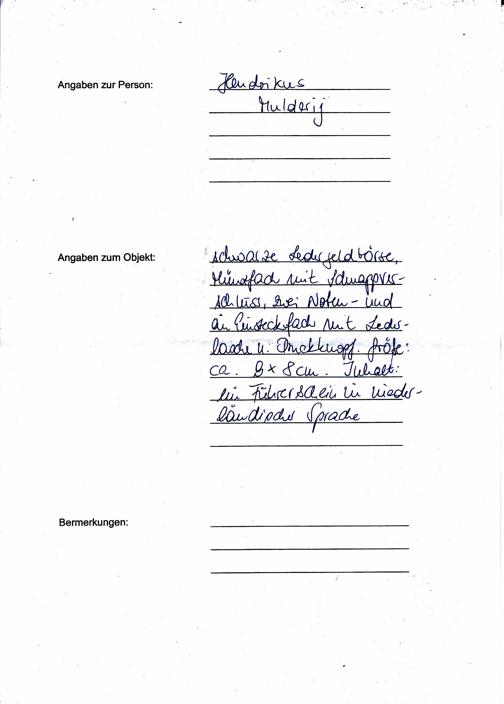 Angaben zur Person:
Hendrikus
Mulderij
Angaben zum Objekt:
schwarze Ledergeldbörse,
Münzfach mit Schnappver-
schluss, zwei Noten- und
ein Einsteckfach mit Leder-
lasche u. Druckknopf. Größe:
ca. 9 x 8 cm. Inhalt:
ein Führerschein in nieder-
ländischer Sprache
Bermerkungen: